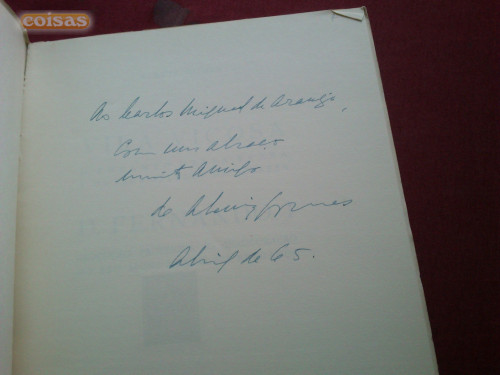 coisas
Ao Carlos Miguel de Araujo,
Com um abraço
muito amigo
de
Abril de 65.